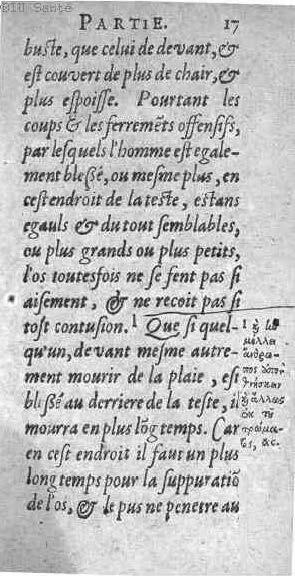 BIU Santé
PARTIE. 17
buste, que celui de devant, &
est couvert de plus de chair, &
plus espoisse. Pourtant les
coups & les ferremēts offensifs,
par lesquels l'homme est egale-
ment blessé, ou mesme plus, en
cest endroit de la teste, estans
egauls & du tout semblables,
ou plus grands ou plus petits,
l'os toutesfois ne se fent pas si
aisement, & ne recoit pas si
tost contusion. 1 Que si quel-
qu'un, devant mesme autre-
ment mourir de la plaie, est
blessé au derriere de la teste, il
mourra en plus lõg temps. Car
en cest endroit il faut un plus
long temps pour la suppuratiõ
de l'os, & le pus ne penetre au
1